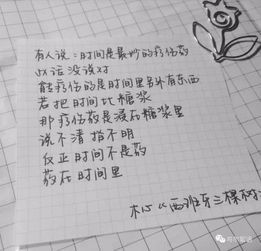 有人说:时间是最妙的疗伤药
此话没说对
能疗伤的是时间里另外有东西
若把时间比糖浆
那疗伤药是浸在糖浆里
说不清 指不明
反正时间不是药
药在时间里
木心《西班牙三棵树》